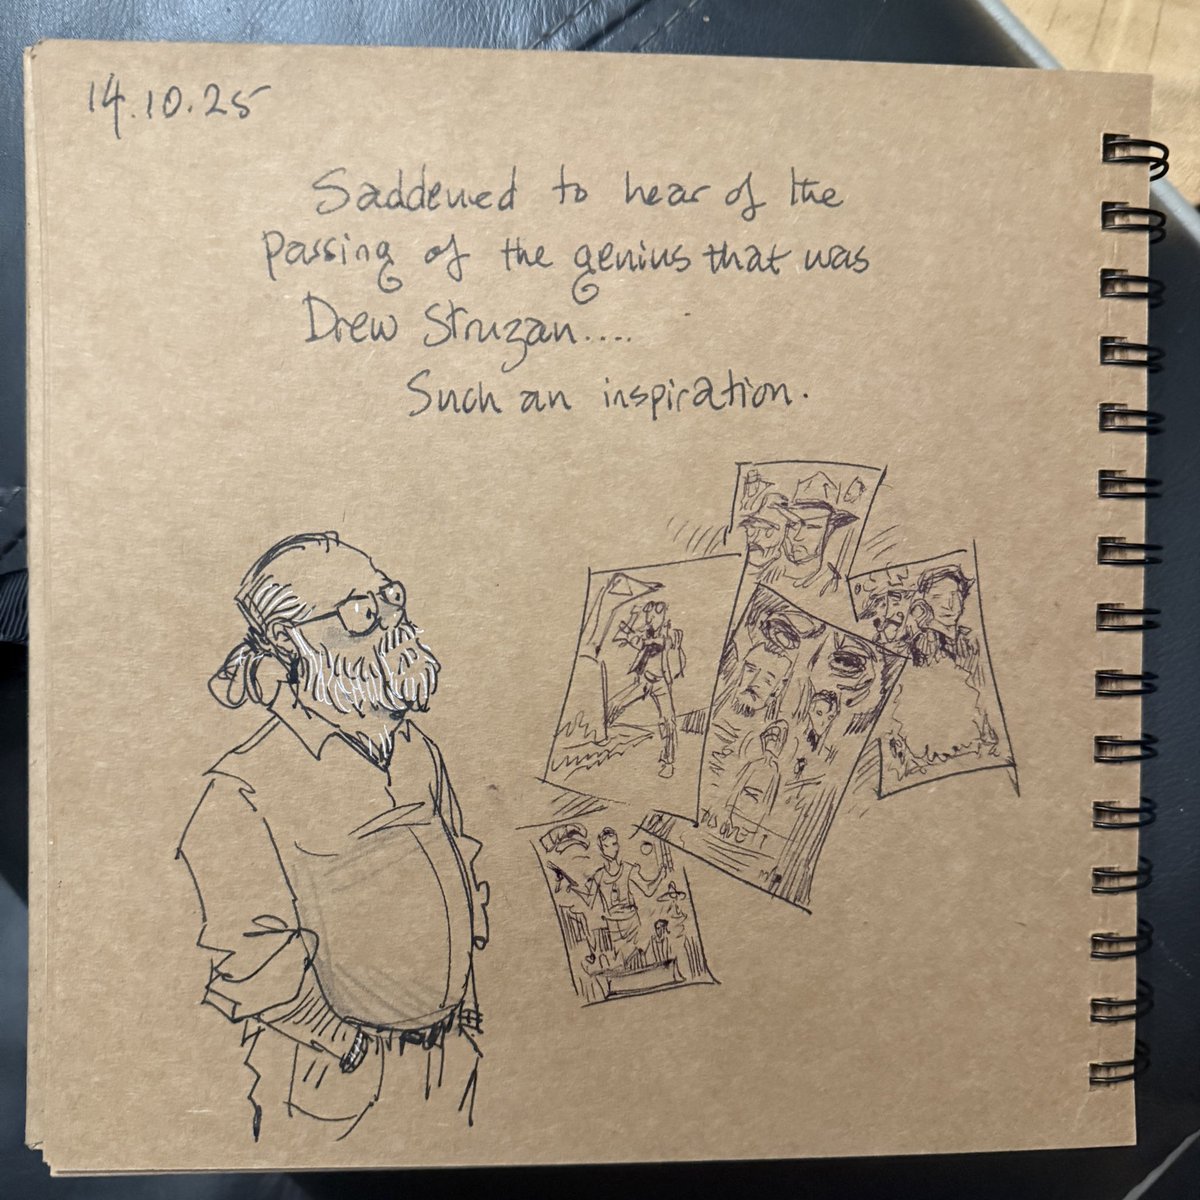 14.10.25
Saddened to hear of the
passing of the genius that was
Drew Struzan....
Such an inspiration.